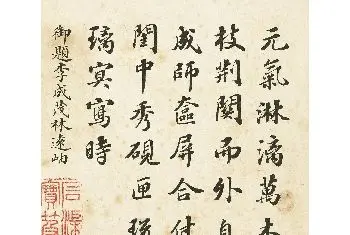 元氣淋漓萬木
枝荊關而外自
成師奩屏合付
閨中秀硯匣琉
璃寫時
御題李成茂林遠岫